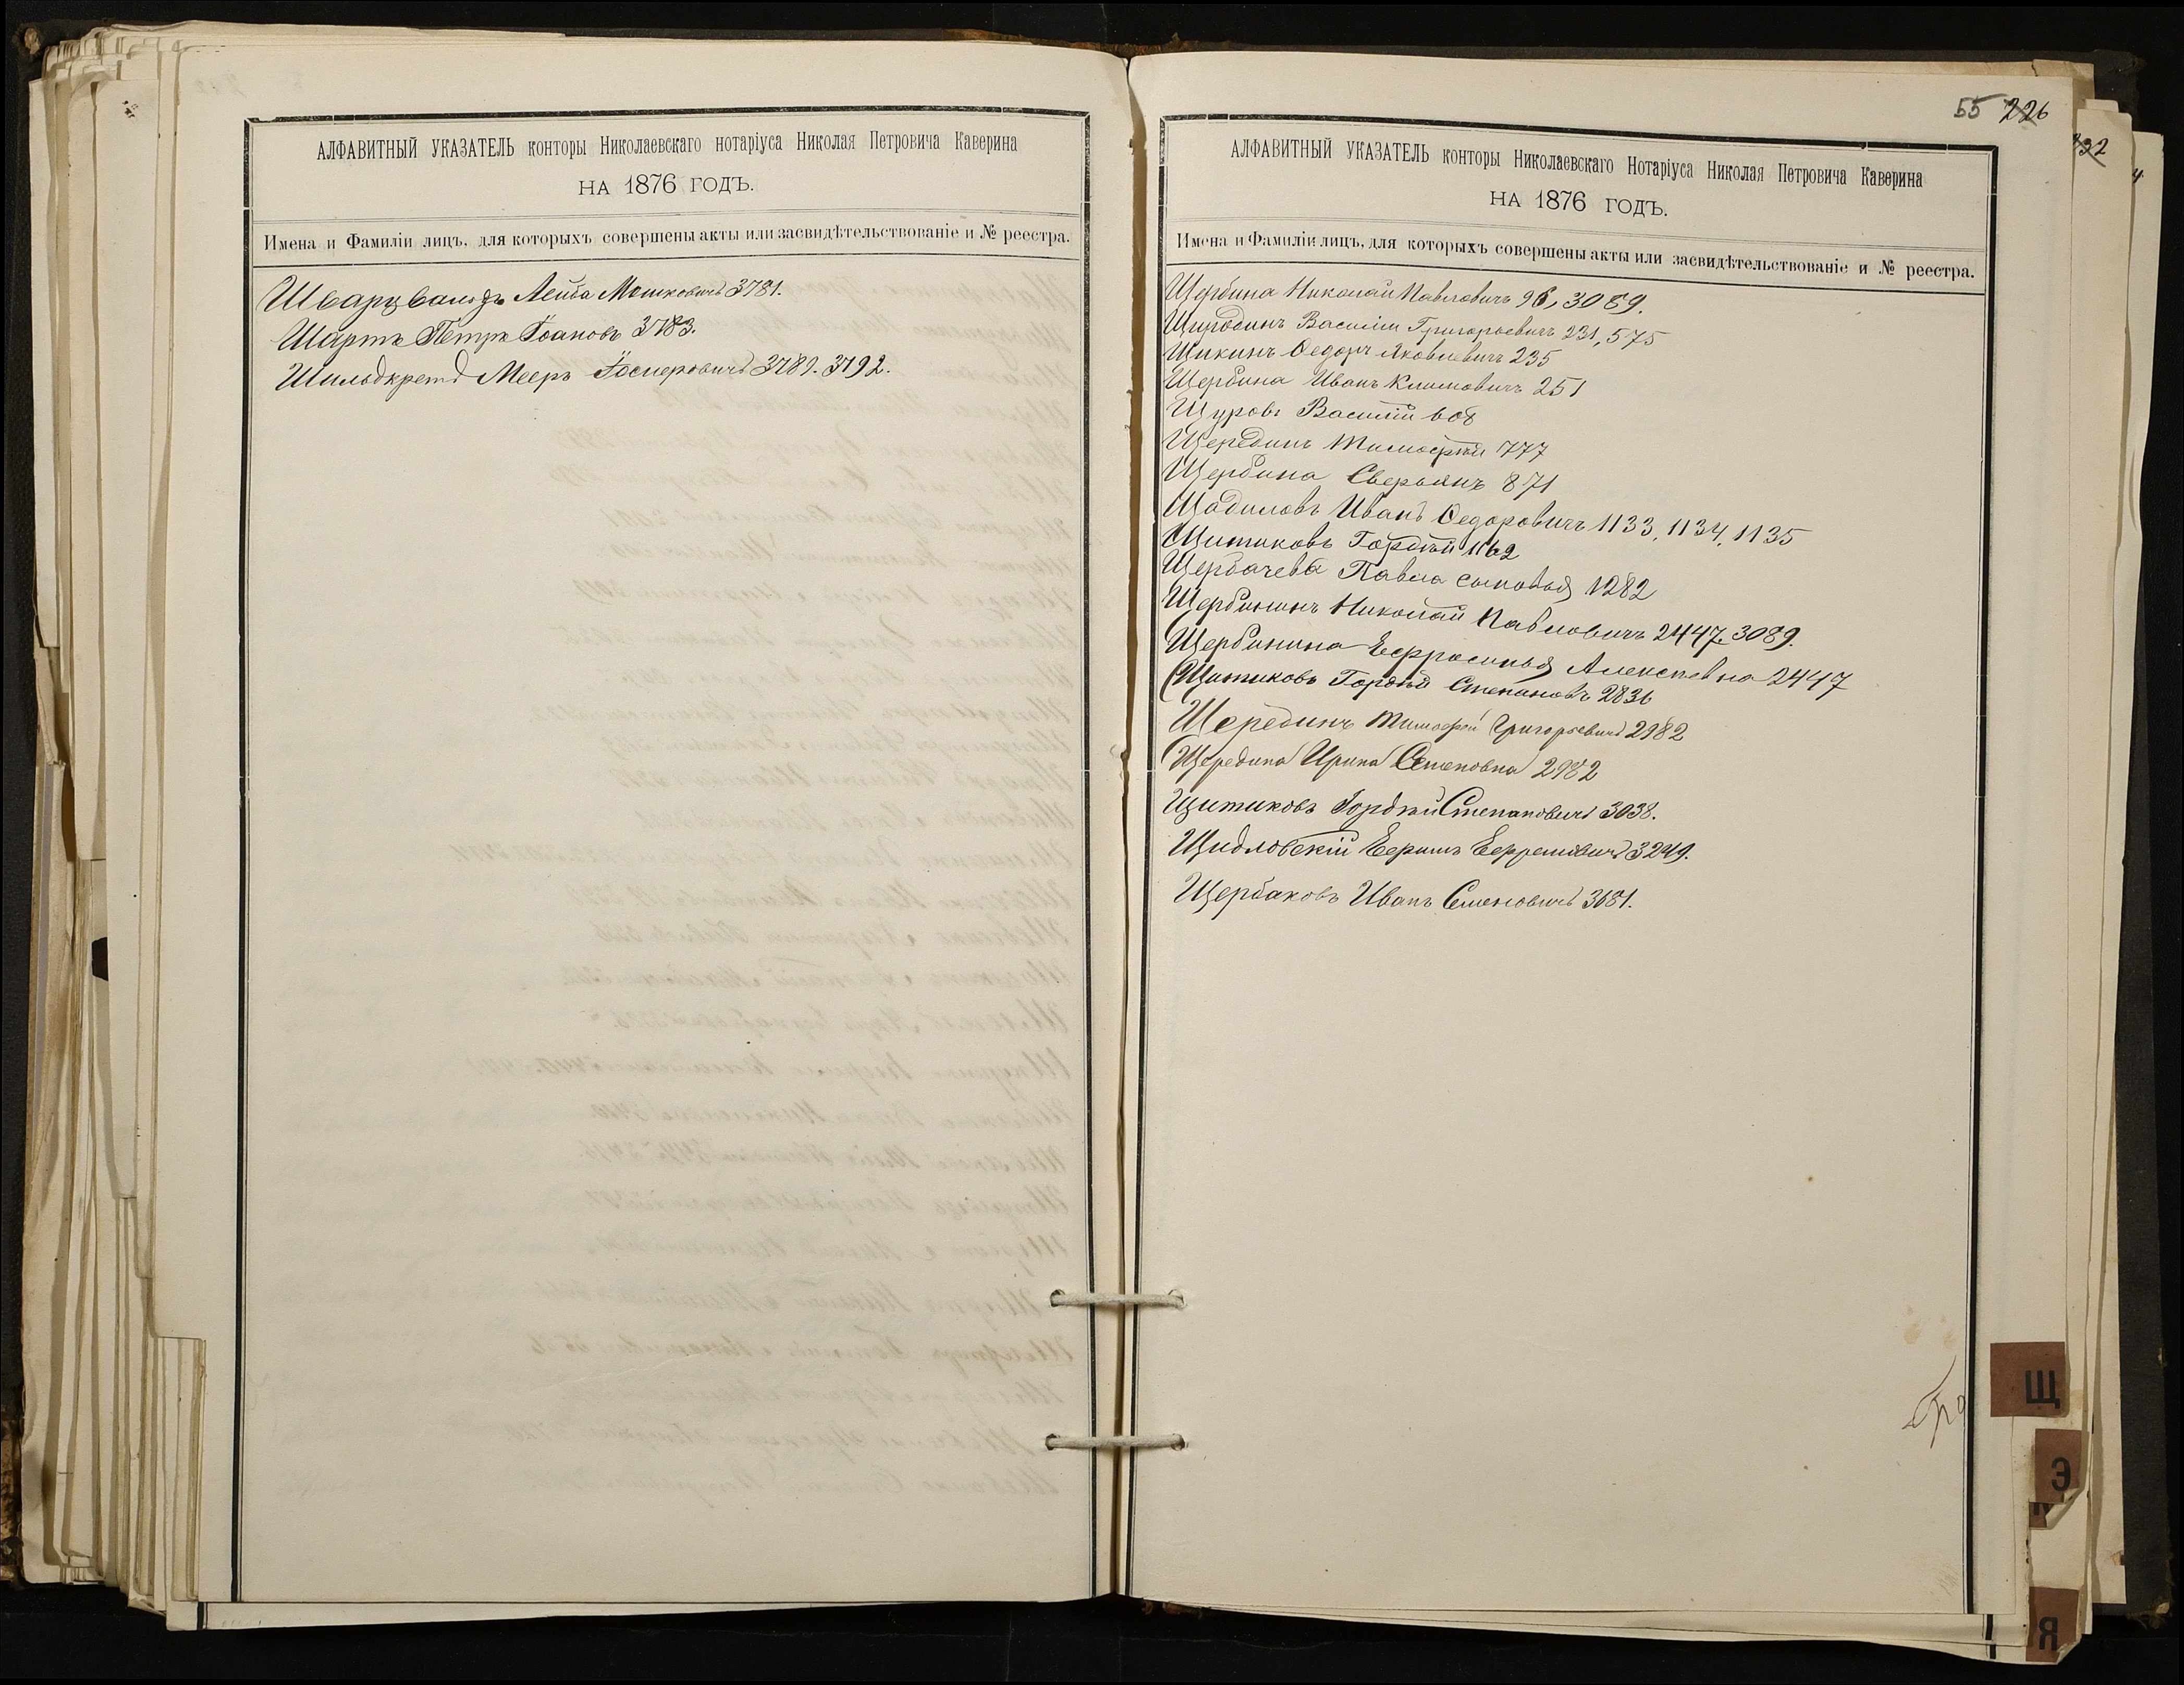 АЛФАВИТНЫЙ УКАЗАТЕЛЬ конторы Николаевскаго нотаріуса Николая Петровича Каверина
НА 1876 ГОДЪ.
Имена и Фамиліи лицъ, для которыхъ совершены акты или засвидѣтельствованіе и № реестра.
Шварцвальдъ Лейба Мошковичъ 3781.
Шартъ Петръ Іоановъ 3783.
Шильдкретъ Мееръ 3789. 3792.
55 226
АЛФАВИТНЫЙ УКАЗАТЕЛЬ конторы Николаевскаго Нотаріуса Николая Петровича Каверина
НА 1876 ГОДЪ.
Имена и Фамиліи лицъ, для которыхъ совершены акты или засвидѣтельствованіе и № реестра.
Щербина Николай Павловичъ 96, 3089.
Василій Григорьевичъ 231, 575
Щикинъ Ѳедоръ Яковлевичъ 235
Щербина Иванъ Климовичъ 251
Щуровъ Василій 608
Щерединъ Тимофей 777
Щербина Сверьянъ 871
Щадиловъ Иванъ Ѳедоровичъ 1133, 1134, 1135
Щитиковъ Гордѣй 1162
Щербачева Павла сыновья 1282
Щербининъ Николай Павловичъ 2447. 3089.
Щербинина Ефросинья Алексѣевна 2447
Щитиковъ Гордѣй Степановъ 2836
Щерединъ Тимофей Григорьевичъ 2982
Щередина Ирина Семеновна 2982
Щитиковъ Гордѣй Степановичъ 3038.
Щидловскій Ефимъ Ефремовичъ 3249.
Щербаковъ Иванъ Семеновичъ 3681.
Щ
Э
Я